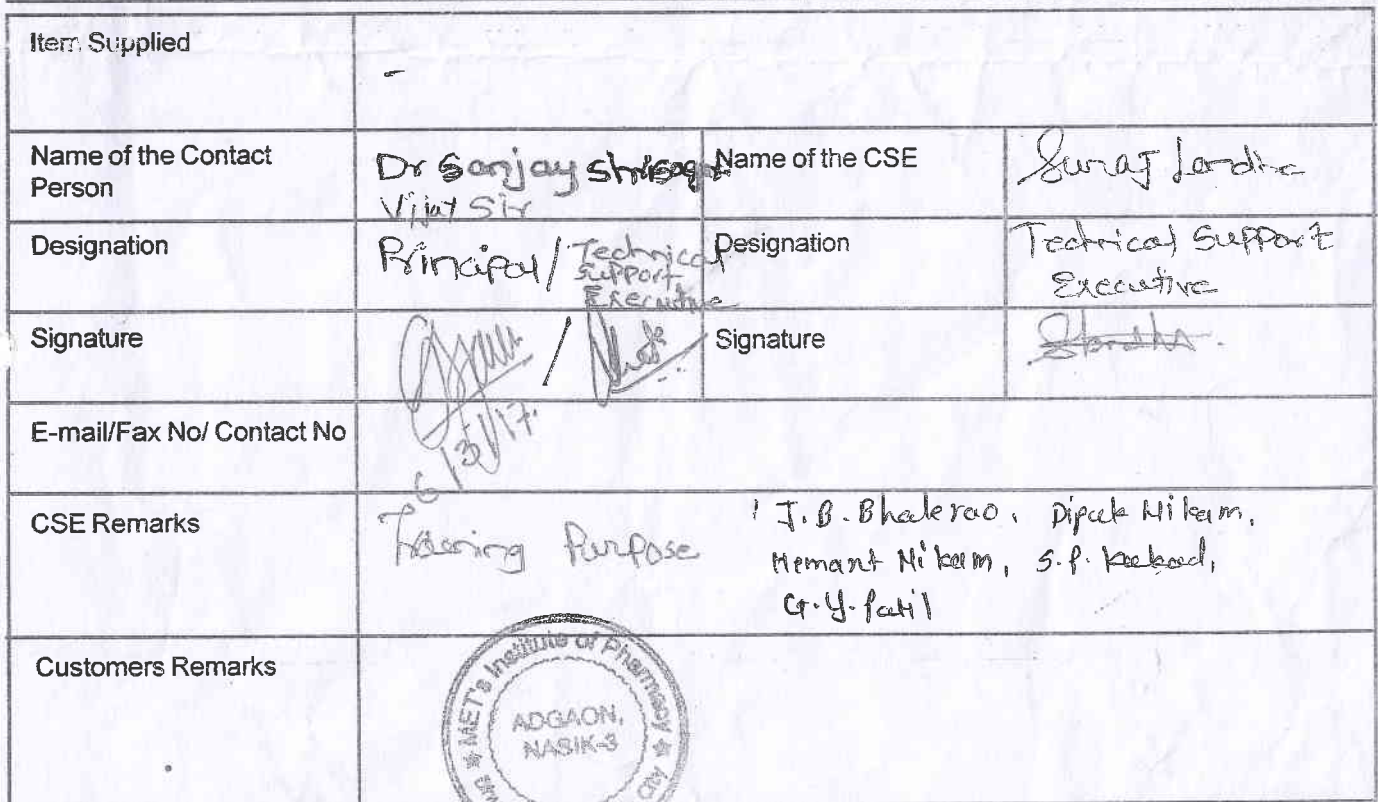 Item Supplied
-
Name of the Contact Person
Dr Sanjay
Vijat Sir
Name of the CSE
Suraj
Designation
Principal / Technical Support Executive
Designation
Technical Support
Executive
Signature
/
Signature
E-mail/Fax No/ Contact No
6/3/17.
CSE Remarks
Purpose
J. B. Bhalerao, Dipak Nikam,
Hemant Nikam, S. P.
G. Y. Patil
Customers Remarks
MET's Institute of Pharmacy
ADGAON,
NASIK-3